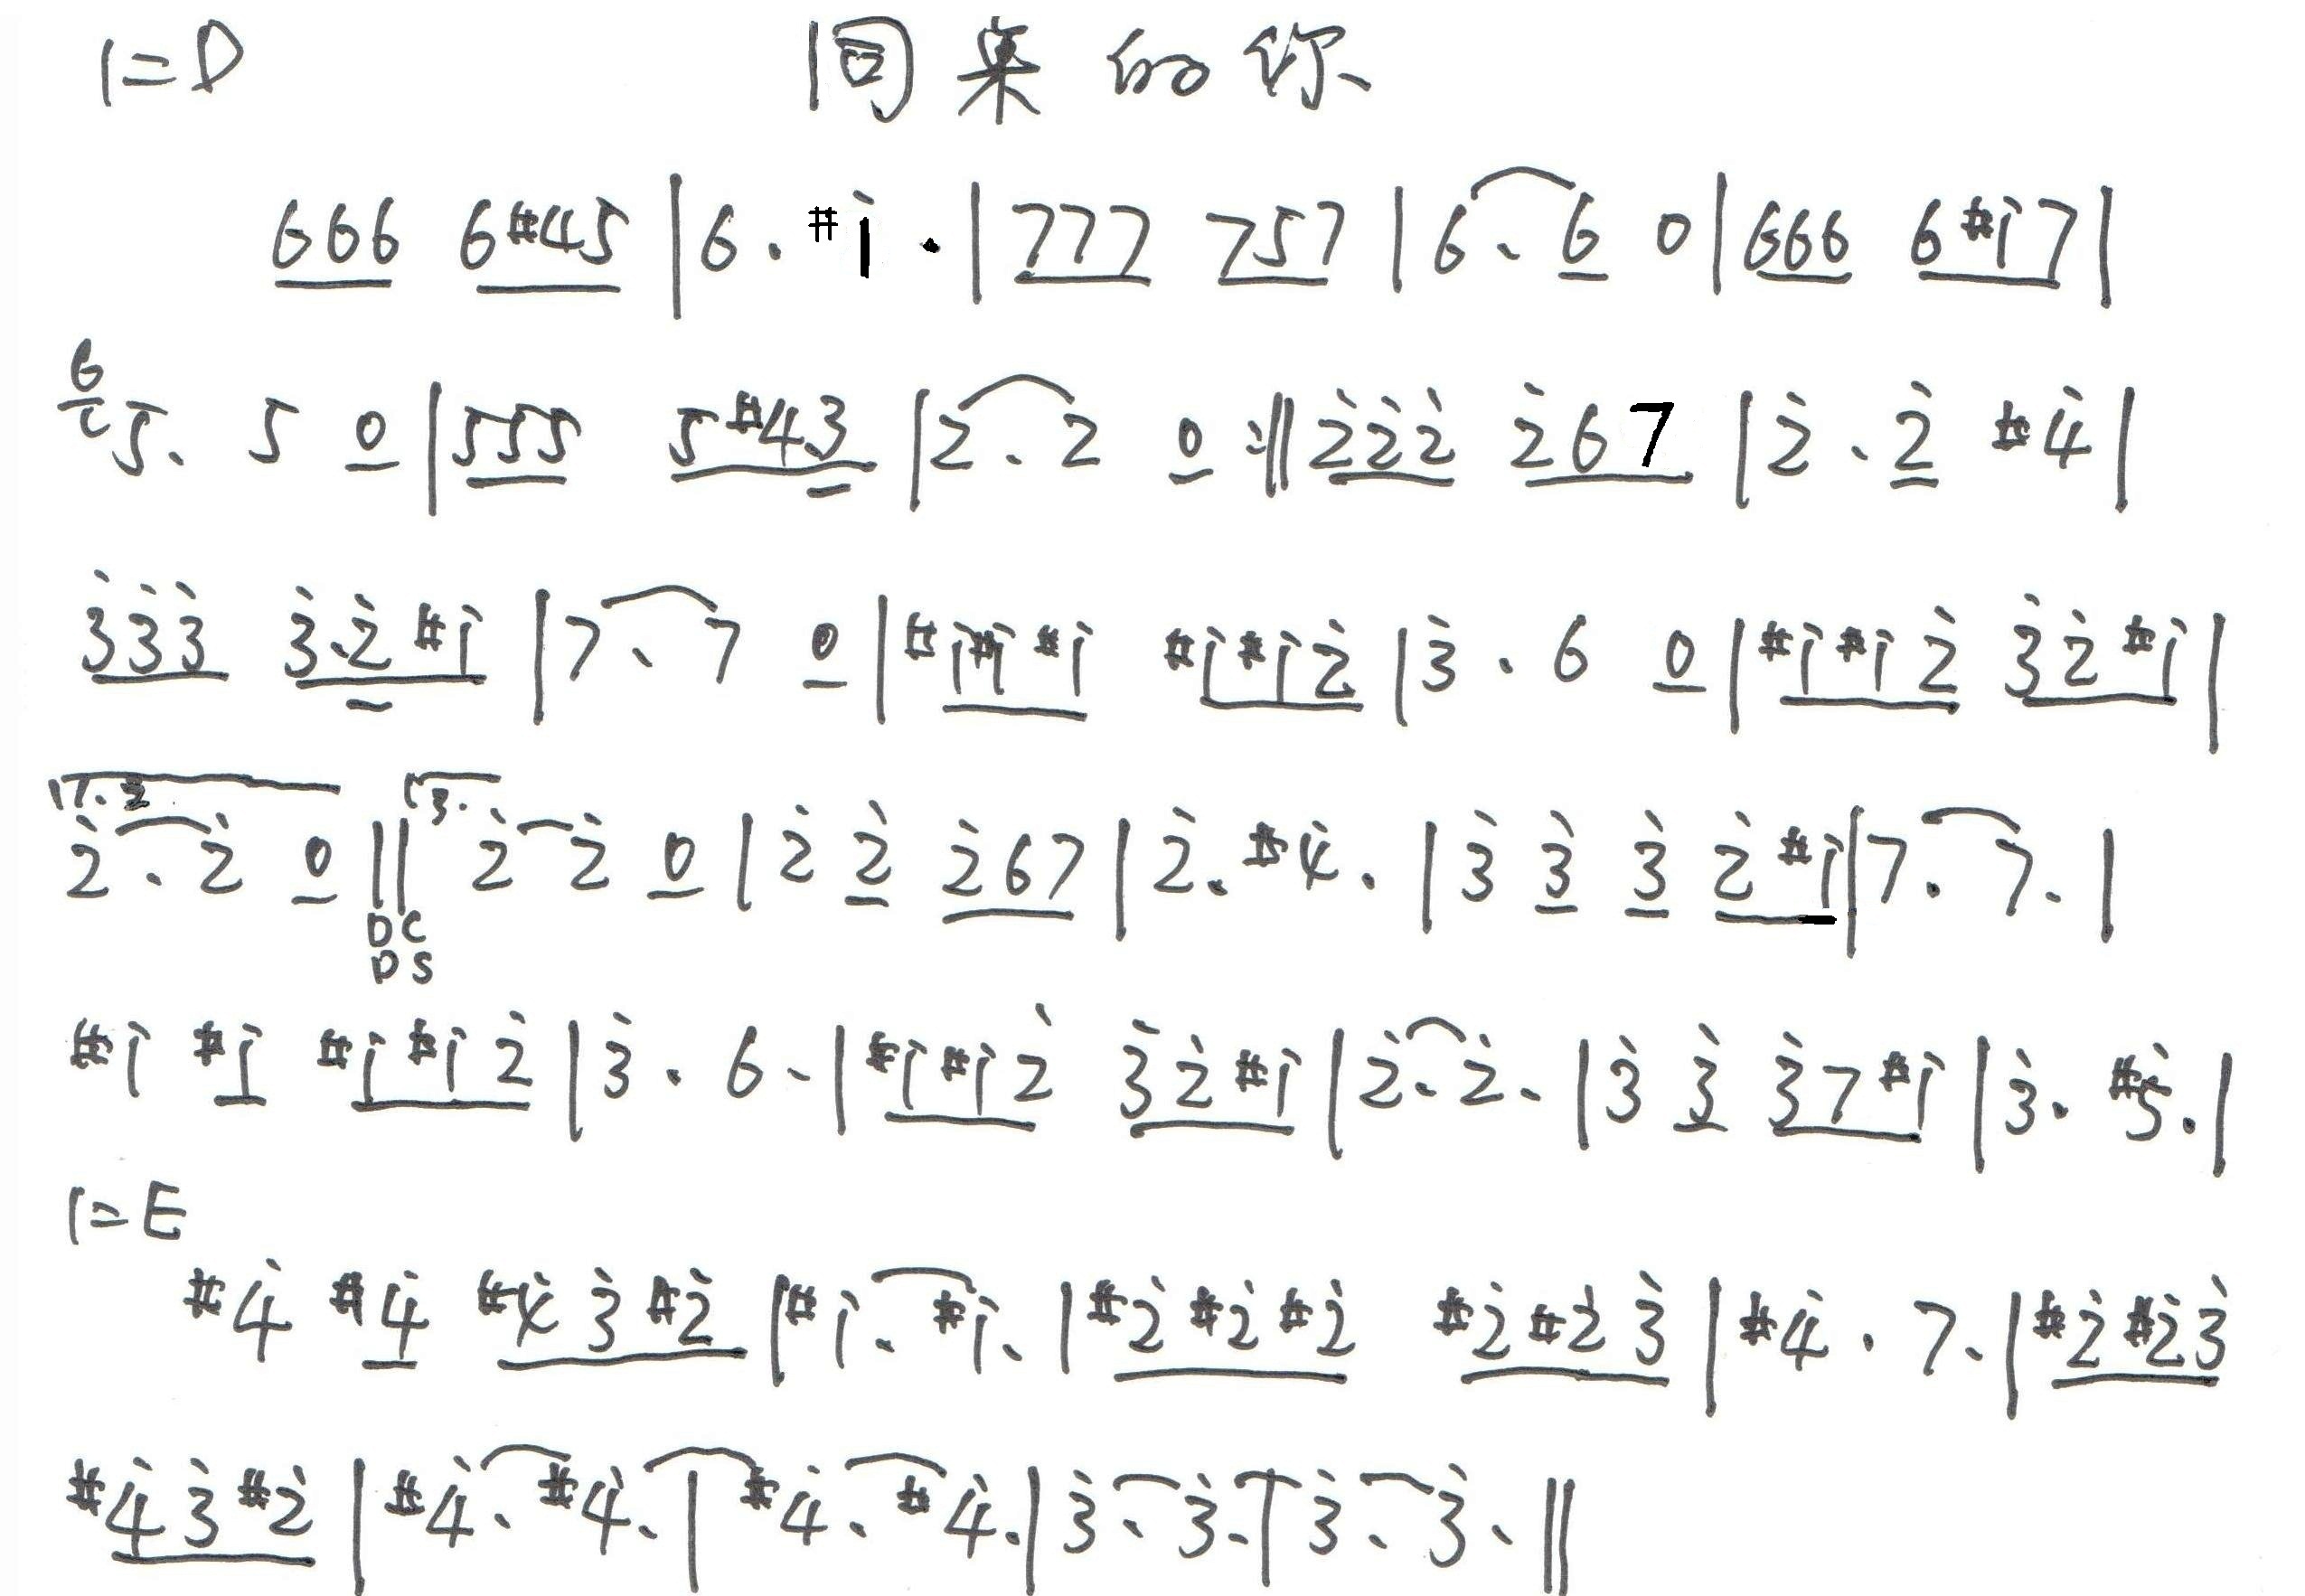 1=D 同桌的你
666 6#45 | 6. #i̇ . | 777 757 | 6. 6 0 | 666 6#i̇7 |
5. 5 0 | 555 5#43 | 2. 2 0 :|| 2̇2̇2̇ 2̇67 | 2̇. 2̇ #4̇ |
3̇3̇3̇ 3̇.2̇#i̇ | 7. 7 0 | #i̇#i̇#i̇ #i̇#i̇2̇ | 3̇. 6 0 | #i̇#i̇2̇ 3̇2̇#i̇ |
1.2. 3.
2̇. 2̇ 0 || 2̇ 2̇ 0 | 2̇ 2̇ 2̇67 | 2̇. #4̇. | 3̇ 3̇ 3̇ 2̇#i̇ | 7. 7. |
DC
DS
#i̇ #i̇ #i̇#i̇2̇ | 3̇. 6. | #i̇#i̇2̇ 3̇2̇#i̇ | 2̇. 2̇. | 3̇ 3̇ 3̇7#i̇ | 3̇. #5̇. |
1=E
#4̇ #4̇ #4̇3̇#2̇ | #i̇. #i̇. | #2̇#2̇#2̇ #2̇#2̇3̇ | #4̇. 7. | #2̇#2̇3̇
#4̇3̇#2̇ | #4̇. #4̇. | #4̇. #4̇. | 3̇. 3̇. | 3̇. 3̇. ||